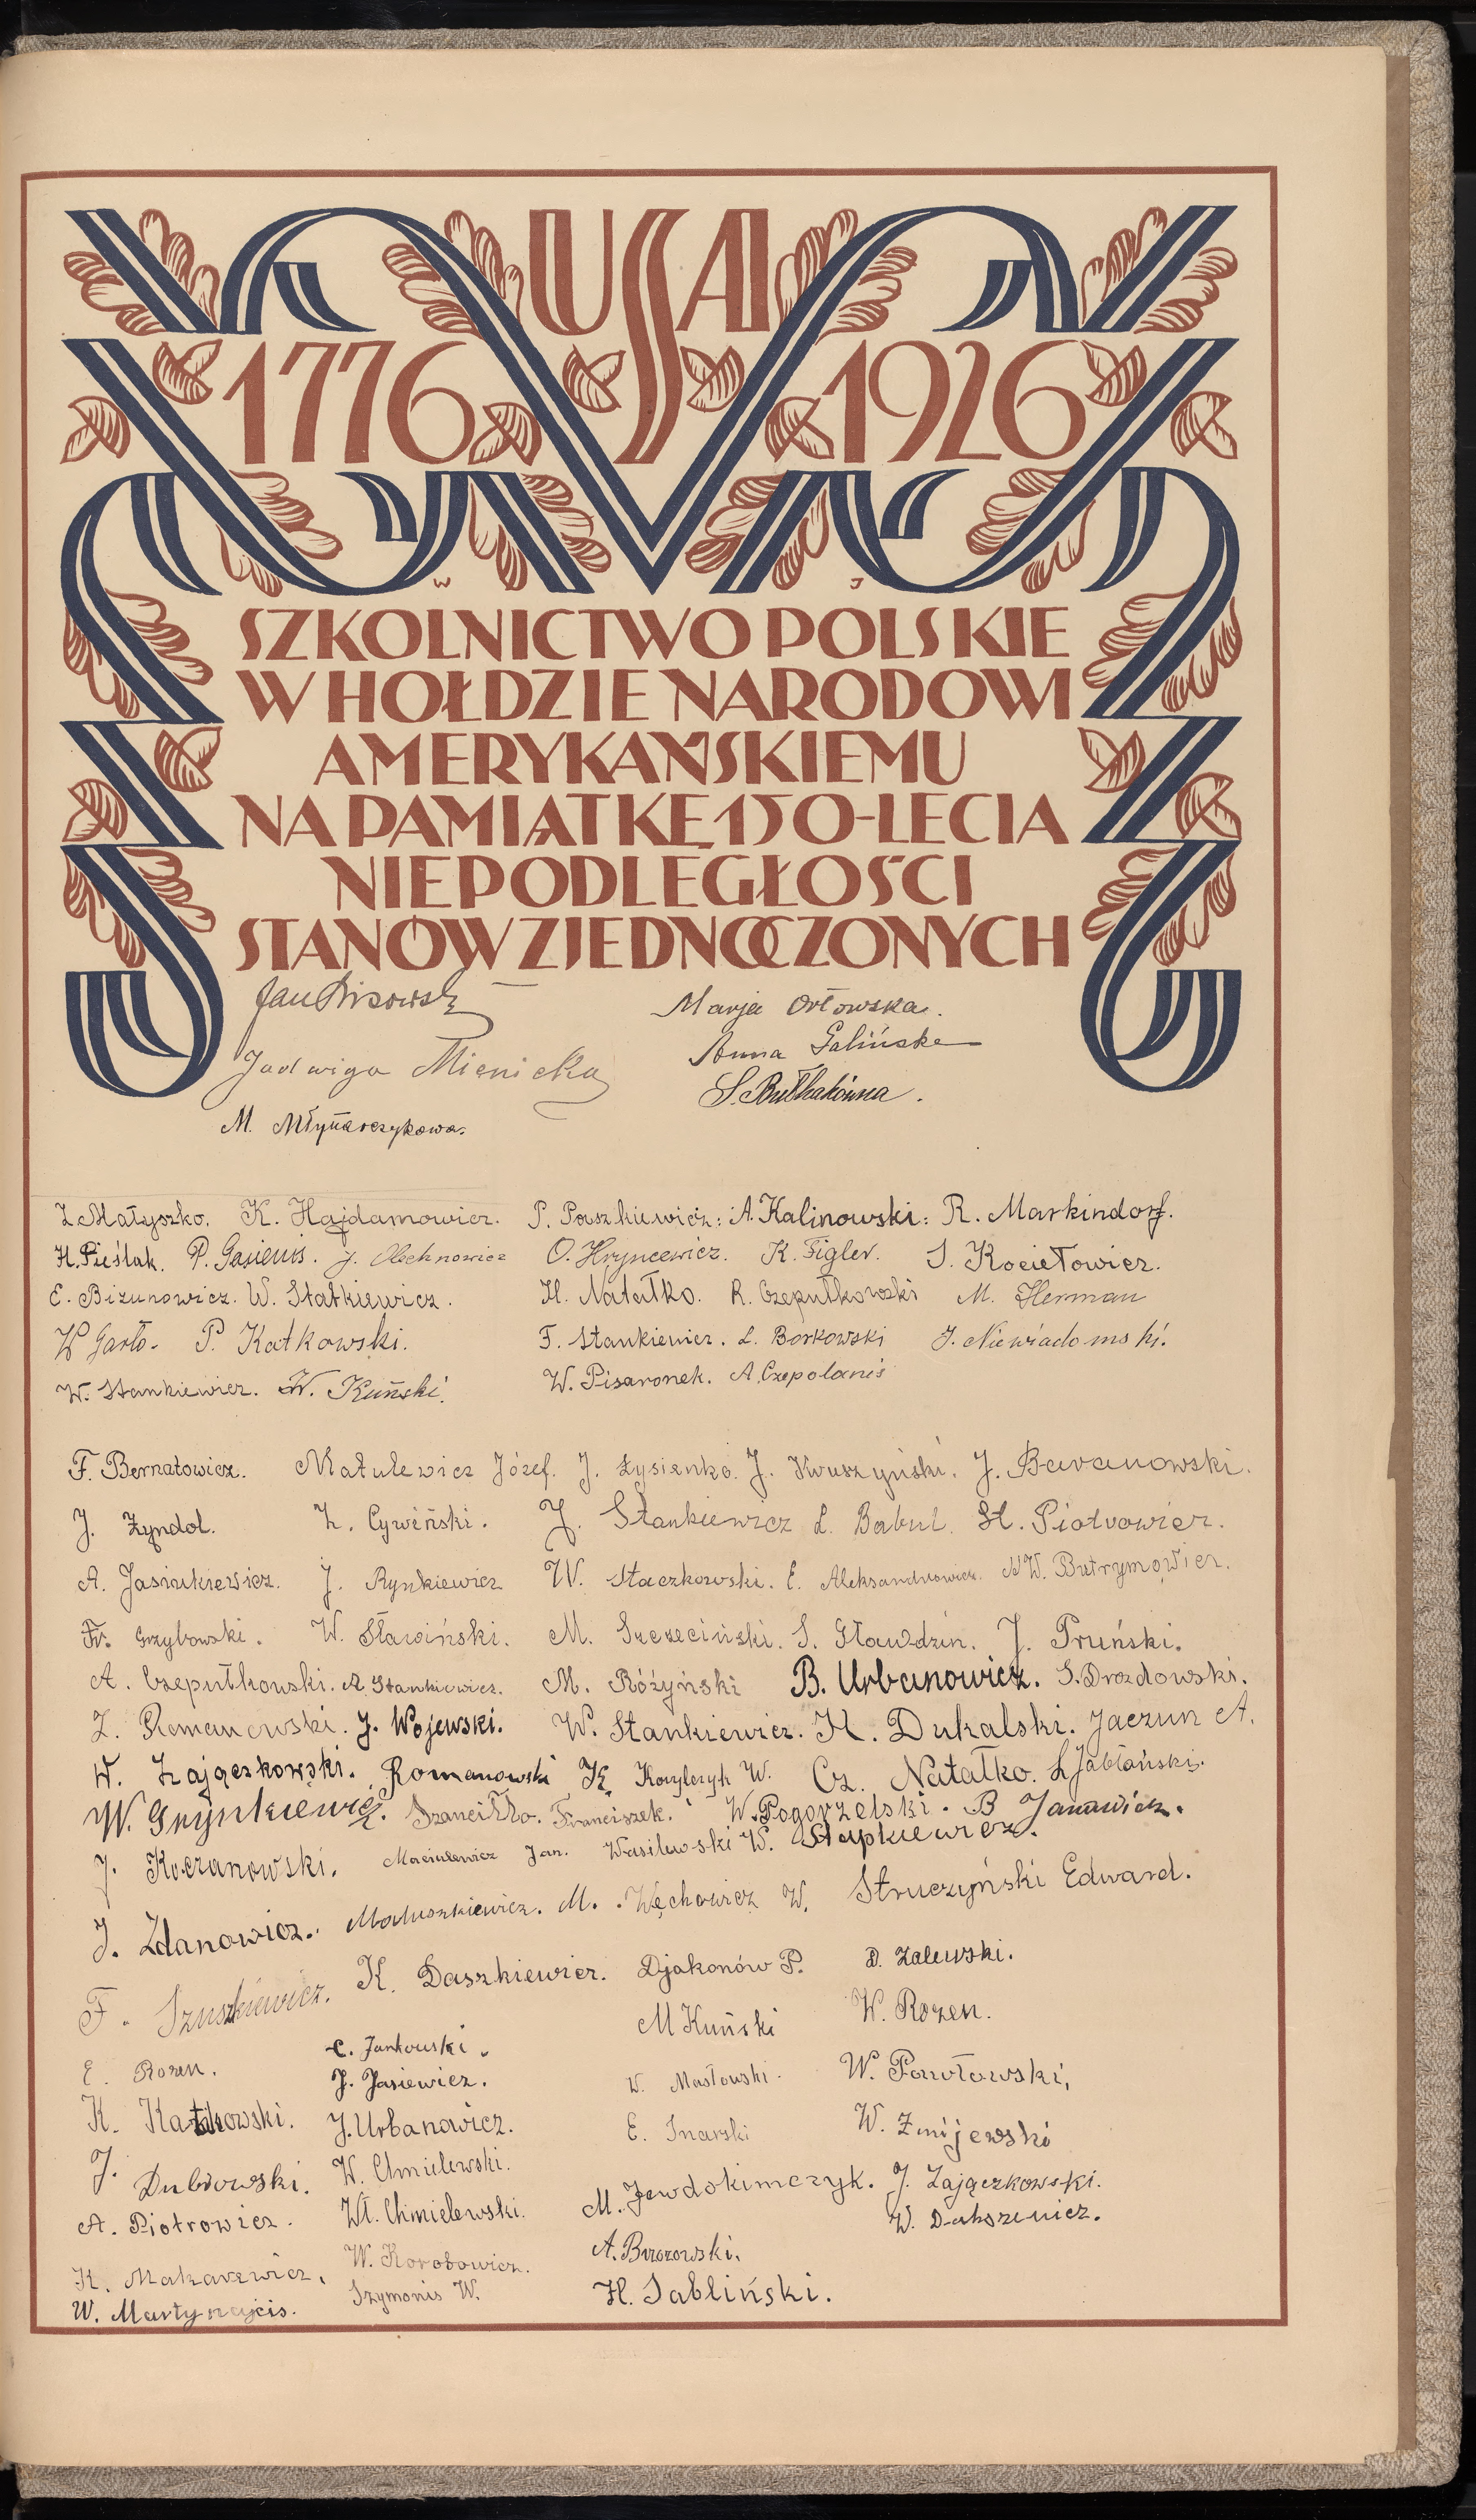 USA
1776 1926
W J
SZKOLNICTWO POLSKIE
W HOŁDZIE NARODOWI
AMERYKAŃSKIEMU
NA PAMIĄTKĘ 150-LECIA
NIEPODLEGŁOŚCI
STANÓW ZJEDNOCZONYCH
Jan Marja Orłowska.
Jadwiga Mienicka Anna Galińska
M. Młynarczykowa. S. Bułhakówna.
Z Małyszko. K. Hajdamowicz. P. Paszkiewicz: A. Kalinowski: R. Markindorf.
H. Pieślak. P. Gasienis. J. Olechnowicz O. Hryncewicz. K. Figler. S. Kociełowicz.
E. Bizunowicz. W. Statkiewicz. H. Natałko. R. Czepułkowski M. Herman
W Garło. P. Katkowski. F. Stankiewicz. L. Borkowski J. Niewiadomski.
W. Stankiewicz. W. Kuński. W. Pisaronek. A. Czepolanis
F. Bernatowicz. Matulewicz Józef. J. Łysienko. J. Kruszyński. J. Baranowski.
J. Żyndol. Z. Cywiński. J. Stankiewicz L. Babul. St. Piotrowicz.
A. Jasiukiewicz. J. Rynkiewicz W. Staczkowski. E. Aleksandrowicz. W. Butrymowicz.
Fr. Grzybowski. W. Sławiński. M. Szczeciński. S. Gławdzin. J. Pruński.
A. Czepułkowski. A. Stankiewicz. M. Różyński B. Urbanowicz. S. Drozdowski.
Z. Romanowski. J. Wojewski. W. Stankiewicz. K. Dukalski. Jaczun A.
W. Zajączkowski. Romanowski K. Korylczyk W. Cz. Natałko. L Jabłoński.
W. Grynkiewicz. Szanciłło. Franciszek. W. Pogorzelski. B Janawicz.
J. Koczanowski. Maciulewicz Jan. Wasilewski W. Stupkiewicz.
J. Zdanowicz. Matuszkiewicz. M. Węchowicz W. Struczyński Edward.
F. Szuszkiewicz. K. Daszkiewicz. Djakonów P. D. Zalewski.
E. Rozen. C. Jankowski. M Kuński W. Rozen.
J. Jasiewicz. W. Masłowski. W. Pawłowski,
K. Katkowski. J. Urbanowicz. E. Inarski W. Żmijewski
J. Dubrowski. W. Chmielewski. M. Jewdokimczyk. J. Zajączkowski.
A. Piotrowicz. Wł. Chmielewski. W. Dakszewicz.
K. Makarewicz, W. Korobowicz. A. Brzozowski.
W. Martynajcis. Szymonis W. H. Jabliński.